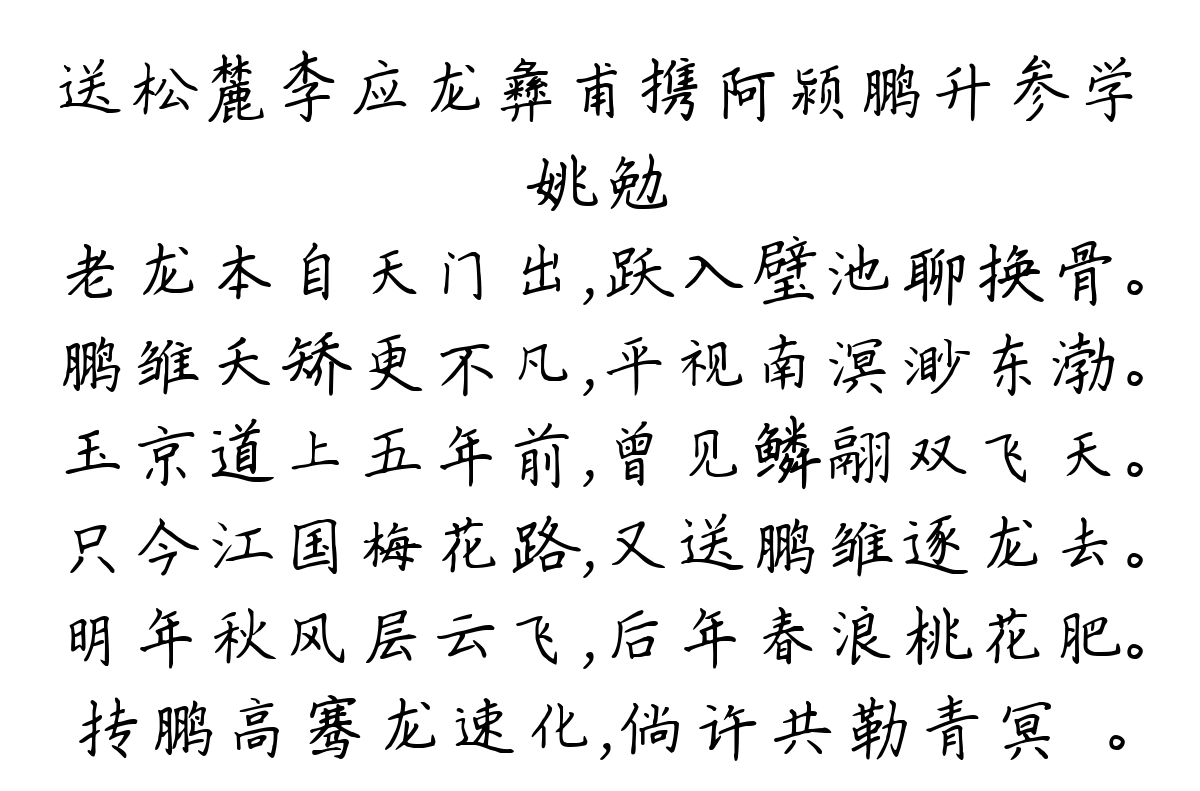 送松麓李应龙彝甫携阿颍鹏升参学
姚勉
老龙本自天门出,跃入璧池聊换骨。
鹏雏夭矫更不凡,平视南溟渺东渤。
玉京道上五年前,曾见鳞翮双飞天。
只今江国梅花路,又送鹏雏逐龙去。
明年秋风层云飞,后年春浪桃花肥。
抟鹏高骞龙速化,倘许共勒青冥 。